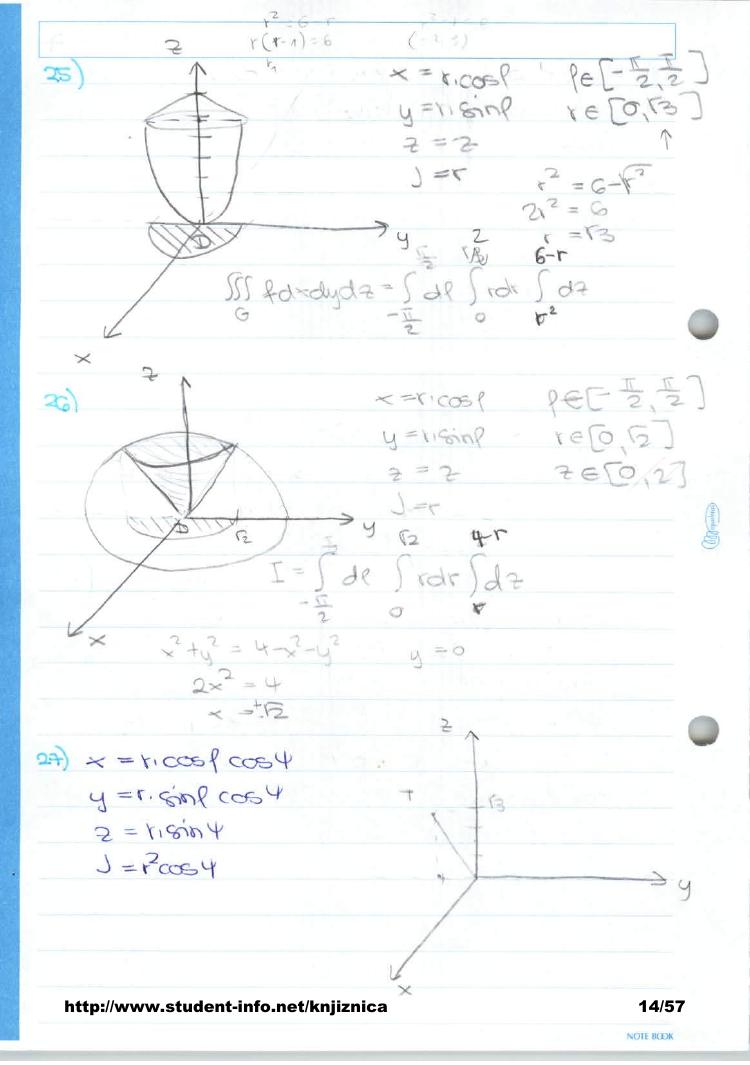 r² = 6 - r
r(r-1) = 6
r₁
25)
z
x = r·cosφ φ∈[-π/2, π/2]
y = r·sinφ r∈[0,√3]
z = z ↑
J = r
r² = 6-√r²
2r² = 6
r = √3
D
y
x
∭ f dxdydz = ∫ dφ ∫ rdr ∫ dz
G
π/2 2 6-r
-π/2 0 r²
26)
z
x = r·cosφ φ∈[-π/2, π/2]
y = r·sinφ r∈[0,√2]
z = z z∈[0,2]
J = r
D
√2
y
x
π/2 √2 4-r
I = ∫ dφ ∫ rdr ∫ dz
-π/2 0 r
x² + y² = 4 - x² - y² y = 0
2x² = 4
x = ±√2
27) x = r·cosφ cosψ
y = r·sinφ cosψ
z = r·sinψ
J = r²cosψ
z
T
√3
y
x
http://www.student-info.net/knjiznica 14/57
NOTE BOOK